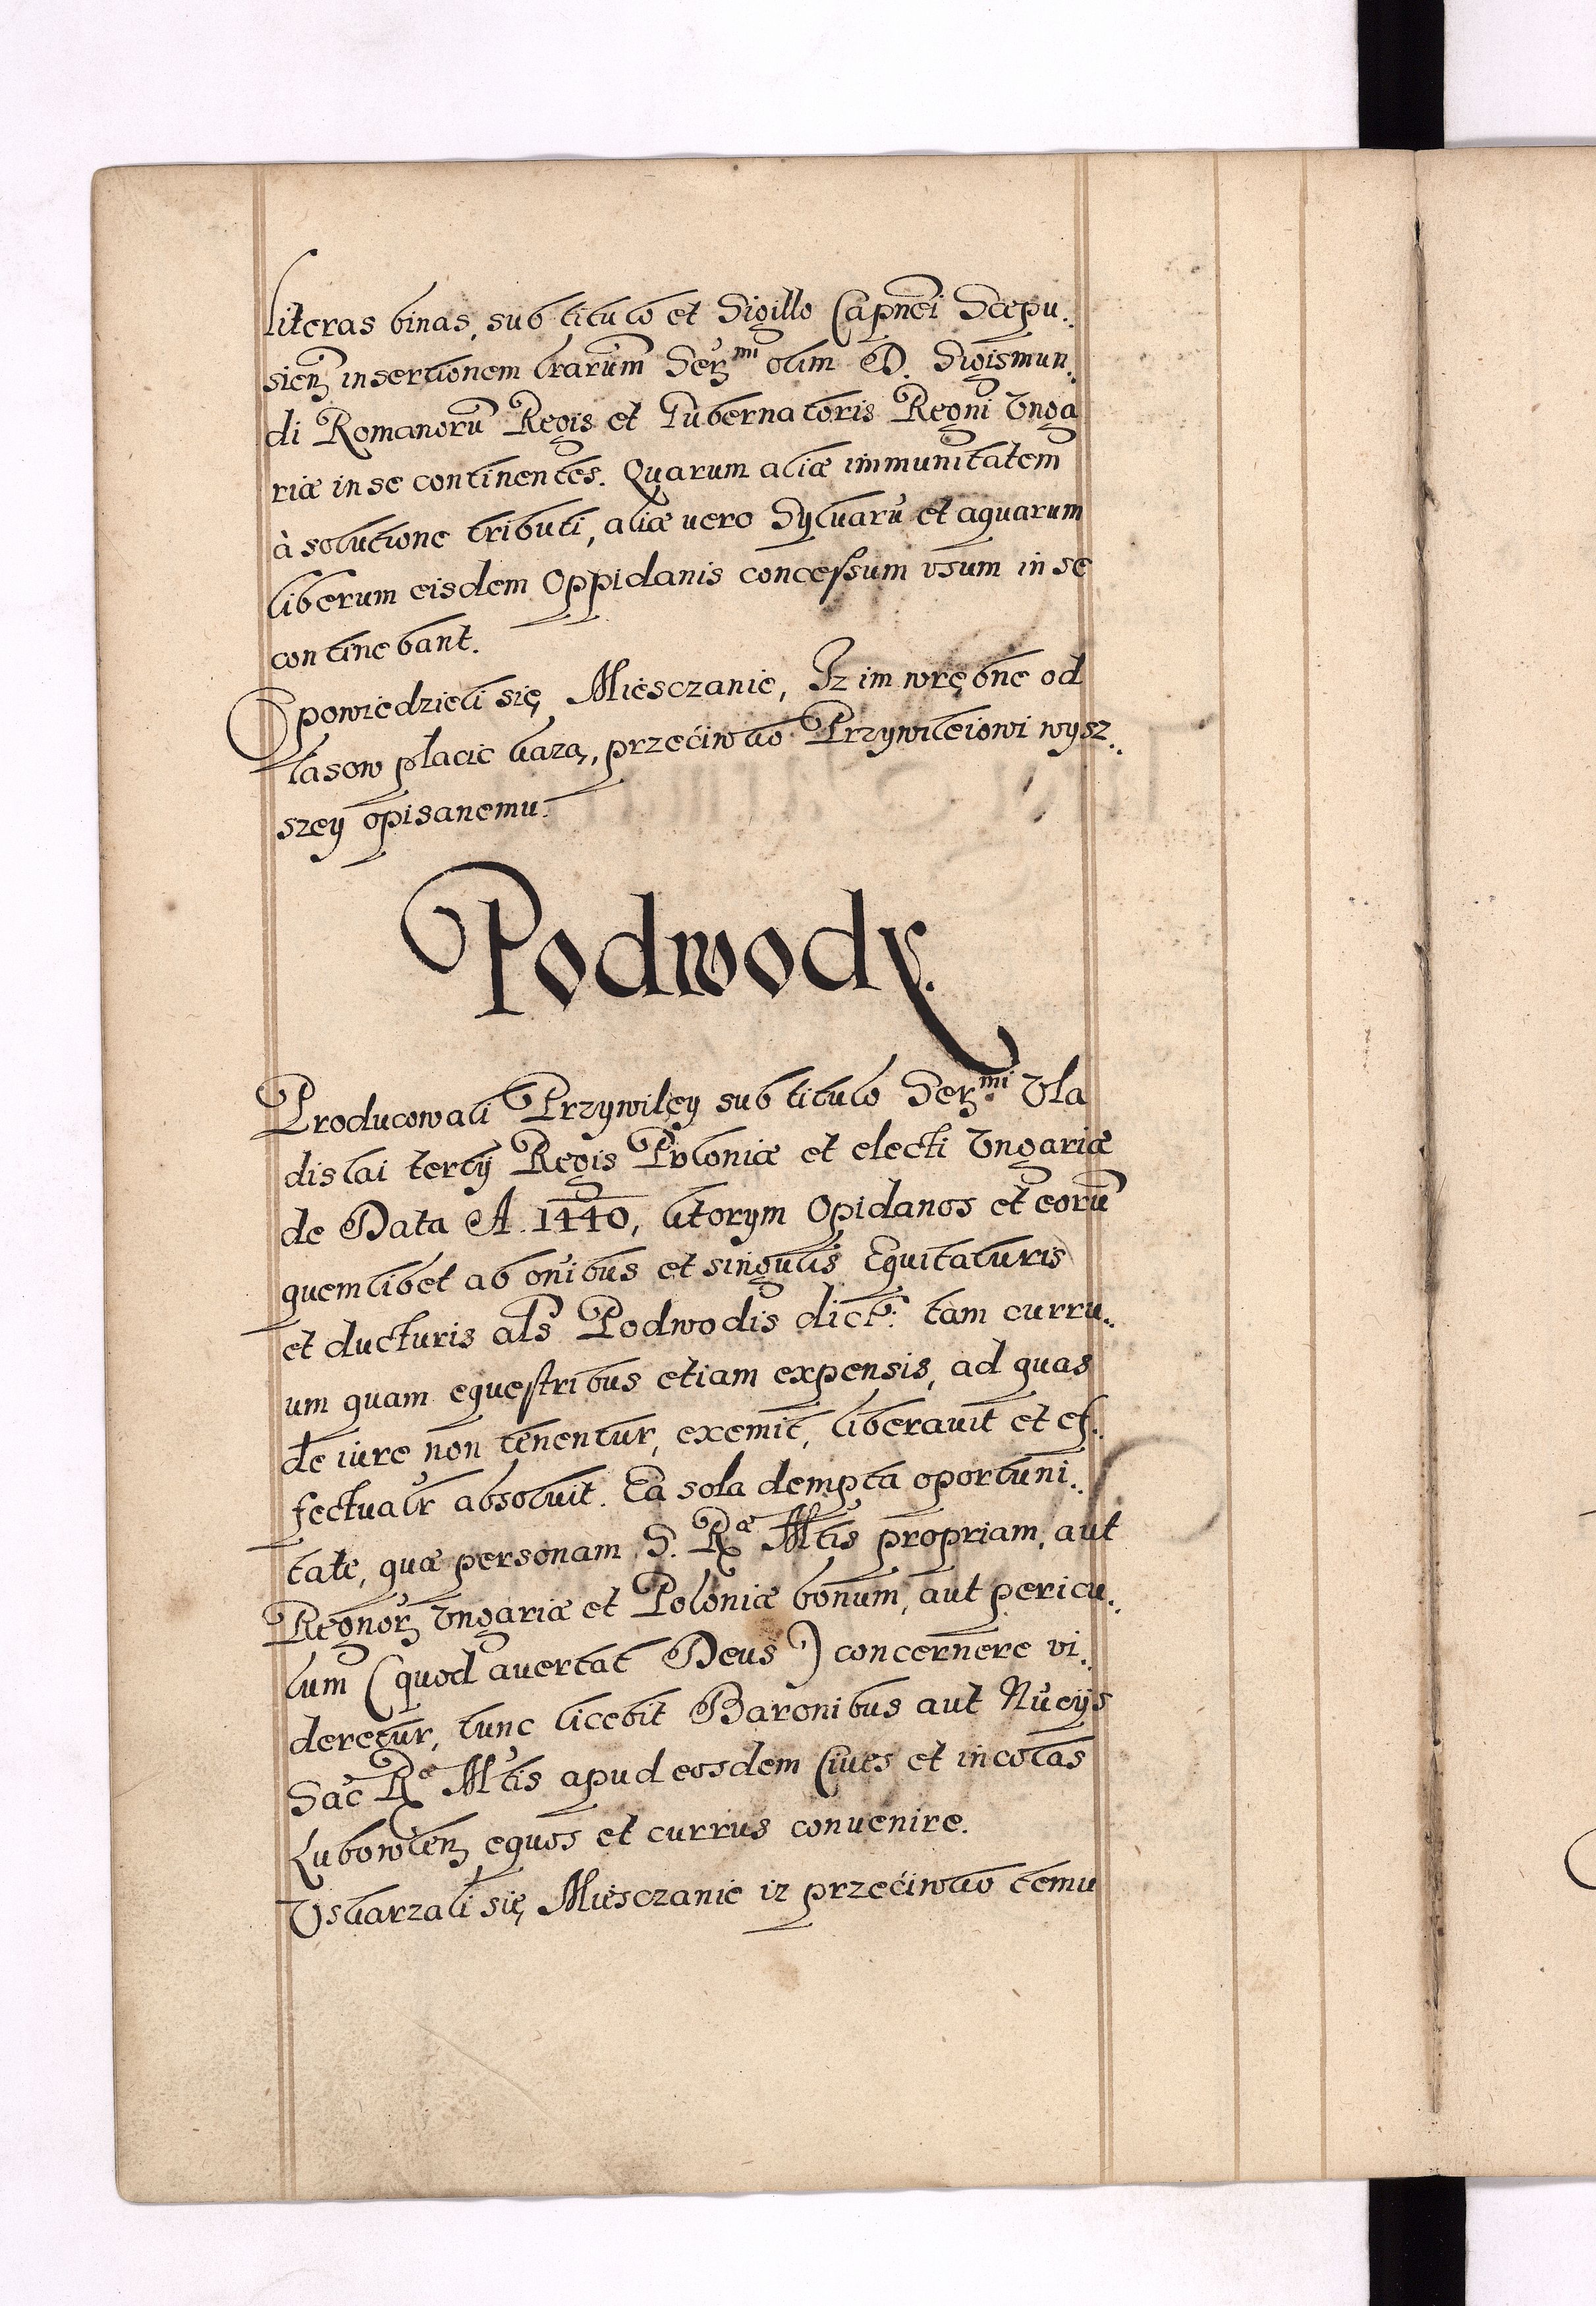 literas binas, sub titulo et Sigillo Capnei Scepu..
sien insertionem lrarum Ser mi olim D. Sigismun..
di Romanorū Regis et Gubernatoris Regni Vnga
riæ in se continentes. Quarum aliæ immunitatem
à solutione tributi, aliæ vero Syluarū et aquarum
liberum eisdem Oppidanis concessum vsum in se
continebant.
Opowiedzieli się Miesczanie, Iz im wrębne od
lasow płacic każą, przećiwko Przywileiowi wysz..
szey opisanemu.
Podwody.
Producowali Przywiley sub titulo Ser mi Vla
dislai tertij Regis Poloniæ et electi Vngariæ
de Data A. 1440, ktorym Opidanos et eorū
quemlibet ab onibus et singulis Equitaturis
et ducturis als Podwodis dict. tam curru..
um quam equestribus etiam expensis, ad quas
de iure non tenentur, exemit, liberauit et ef..
fectualr absoluit. Ea sola dempta oportuni..
tate, quæ personam S. R æ Mtis propriam, aut
Regnor Vngariæ et Poloniæ bonum, aut pericu..
lum (quod auertat Deus) concernere vi..
deretur, tunc licebit Baronibus aut Nūcijs
Sac R e Mtis apud eosdem Ciues et incolas
Lubowlen equos et currus conuenire.
Vskarzali się Miesczanie iz przećiwko temu